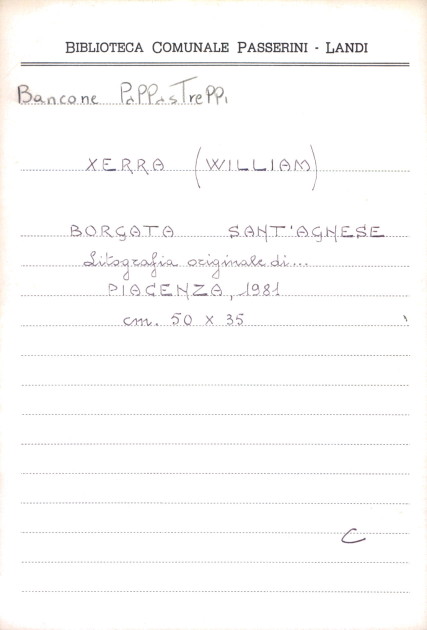 BIBLIOTECA COMUNALE PASSERINI - LANDI
Bancone PaPPasTrePPi
XERRA (WILLIAM)
BORGATA SANT'AGNESE
Litografia originale di...
PIACENZA, 1981
cm. 50 x 35
C